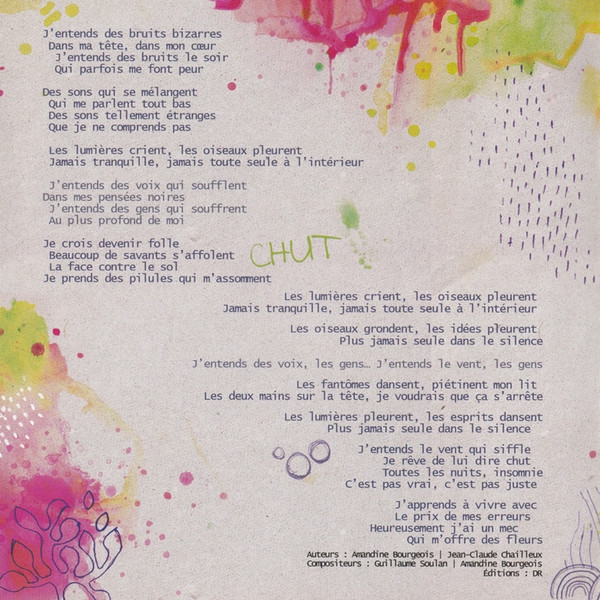 J'entends des bruits bizarres
Dans ma tête, dans mon cœur
J'entends des bruits le soir
Qui parfois me font peur
Des sons qui se mélangent
Qui me parlent tout bas
Des sons tellement étranges
Que je ne comprends pas
Les lumières crient, les oiseaux pleurent
Jamais tranquille, jamais toute seule à l'intérieur
J'entends des voix qui soufflent
Dans mes pensées noires
J'entends des gens qui souffrent
Au plus profond de moi
Je crois devenir folle
Beaucoup de savants s'affolent
La face contre le sol
Je prends des pilules qui m'assomment
CHUT
Les lumières crient, les oiseaux pleurent
Jamais tranquille, jamais toute seule à l'intérieur
Les oiseaux grondent, les idées pleurent
Plus jamais seule dans le silence
J'entends des voix, les gens… J'entends le vent, les gens
Les fantômes dansent, piétinent mon lit
Les deux mains sur la tête, je voudrais que ça s'arrête
Les lumières pleurent, les esprits dansent
Plus jamais seule dans le silence
J'entends le vent qui siffle
Je rêve de lui dire chut
Toutes les nuits, insomnie
C'est pas vrai, c'est pas juste
J'apprends à vivre avec
Le prix de mes erreurs
Heureusement j'ai un mec
Qui m'offre des fleurs
Auteurs : Amandine Bourgeois | Jean-Claude Chailleux
Compositeurs : Guillaume Soulan | Amandine Bourgeois
Éditions : DR